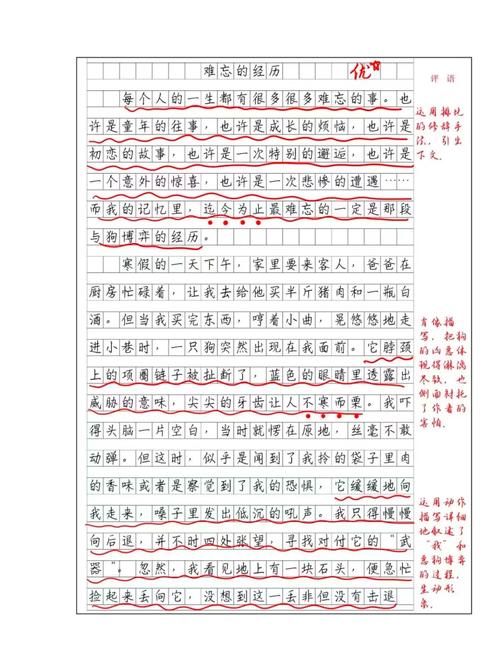 难忘的经历
优
评语
每个人的一生都有很多很多难忘的事。也
许是童年的往事，也许是成长的烦恼，也许是
初恋的故事，也许是一次特别的邂逅，也许是
一个意外的惊喜，也许是一次悲惨的遭遇……
而我的记忆里，迄今为止最难忘的一定是那段
与狗博弈的经历。
寒假的一天下午，家里要来客人，爸爸在
厨房忙碌着，让我去给他买半斤猪肉和一瓶白
酒。但当我买完东西，哼着小曲，晃悠悠地走
进小巷时，一只狗突然出现在我面前。它脖颈
上的项圈链子被扯断了，蓝色的眼睛里透露出
威胁的意味，尖尖的牙齿让人不寒而栗。我吓
得头脑一片空白，当时就愣在原地，丝毫不敢
动弹。但这时，似乎是闻到了我拎的袋子里肉
的香味或者是察觉到了我的恐惧，它缓缓地向
我走来，嗓子里发出低沉的吼声。我只得慢慢
向后退，并不时四处张望，寻找对付它的“武
器”。忽然，我看见地上有一块石头，便急忙
捡起来丢向它，没想到这一丢非但没有击退
运用排比
的修辞手
段，引出
下文。
肖像描
写，把狗
的凶恶体
现得淋漓
尽致，也
侧面衬托
了作者的
害怕。
运用动作
描写详细
地叙述了
“我”和
恶狗博弈
的过程，
生动形
象。